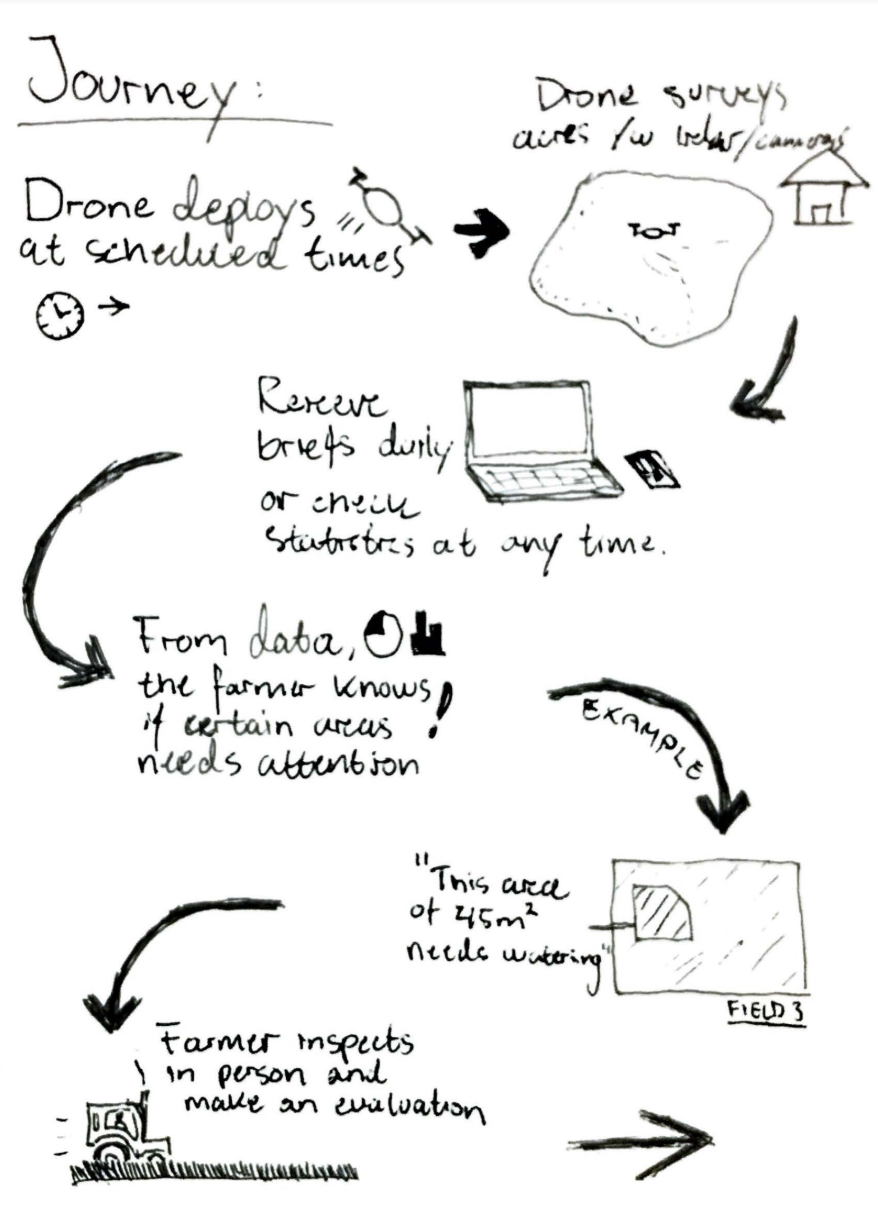 Journey:
Drone deploys
at scheduled times
Drone surveys
acres /w lidar/cameras
Receive
briefs daily
or check
statistics at any time.
From data,
the farmer knows
if certain areas
needs attention
!
EXAMPLE
"This area
of 45m²
needs watering"
FIELD 3
Farmer inspects
in person and
make an evaluation